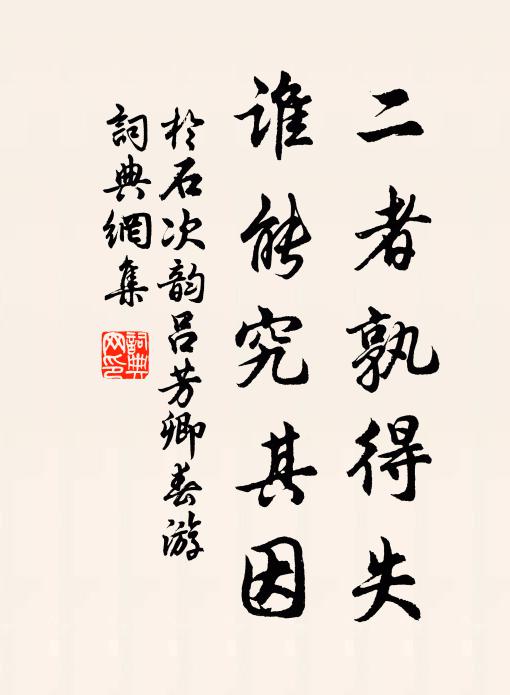 二者孰得失
谁能究其因
於石次韵吕芳卿春游
詞典網集
詞典网印